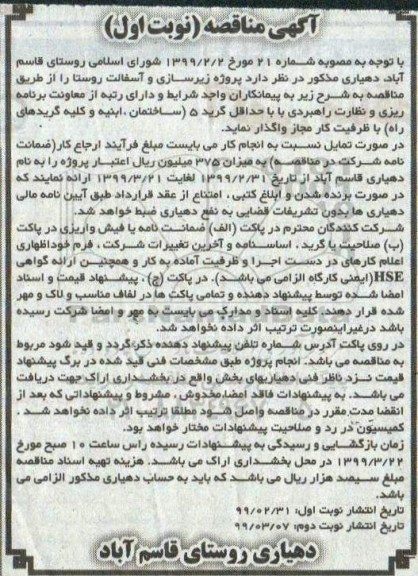 آگهی مناقصه (نوبت اول)
با توجه به مصوبه شماره ۲۱ مورخ ۱۳۹۹/۲/۲ شورای اسلامی روستای قاسم
آباد، دهیاری مذکور در نظر دارد پروژه زیرسازی و آسفالت روستا را از طریق
مناقصه به شرح زیر به پیمانکاران واجد شرایط و دارای رتبه از معاونت برنامه
ریزی و نظارت راهبردی با با حداقل گرید ۵ (ساختمان ،ابنیه و کلیه گریدهای
راه) با ظرفیت کار مجاز واگذار نماید.
در صورت تمایل نسبت به انجام کار می بایست مبلغ فرآیند ارجاع کار(ضمانت
نامه شرکت در مناقصه) به میزان ۳۷۵ میلیون ریال اعتبار پروژه را به نام
دهیاری قاسم آباد از تاریخ ۱۳۹۹/۲/۳۱ لغایت ۱۳۹۹/۳/۲۱ ارائه نمایند که
در صورت برنده شدن و ابلاغ کتبی ، امتناع از عقد قرارداد طبق آیین نامه مالی
دهیاری ها بدون تشریفات قضایی به نفع دهیاری ضبط خواهد شد.
شرکت کنندگان محترم در پاکت (الف) ضمانت نامه یا فیش واریزی در پاکت
(ب) صلاحیت یا گرید ، اساسنامه و آخرین تغییرات شرکت ، فرم خوداظهاری
اعلام کارهای در دست اجرا و ظرفیت آماده به کار و همچنین ارائه گواهی
HSE(ایمنی کارگاه الزامی می باشد). در پاکت (ج) ، پیشنهاد قیمت و اسناد
امضا شده توسط پیشنهاد دهنده و تمامی پاکت ها در لفاف مناسب و لاک و مهر
شده قرار دهند. کلیه اسناد و مدارک می بایست به مهر و امضا شرکت رسیده
باشد درغیراینصورت ترتیب اثر داده نخواهد شد.
در روی پاکت آدرس شماره تلفن پیشنهاد دهنده ذکر گردد و قید شود مربوط
به مناقصه می باشد. انجام پروژه طبق مشخصات فنی قید شده در برگ پیشنهاد
قیمت نزد ناظر فنی دهیاریهای بخش واقع در بخشداری اراک جهت دریافت
می باشد. به پیشنهادات فاقد امضا،مخدوش ، مشروط و پیشنهاداتی که بعد از
انقضا مدت مقرر در مناقصه واصل شود مطلقا ترتیب اثر داده نخواهد شد .
کمیسیون در رد و صلاحیت پیشنهادات مختار خواهد بود.
زمان بازگشایی و رسیدگی به پیشنهادات رسیده راس ساعت ۱۰ صبح مورخ
۱۳۹۹/۳/۲۲ در محل بخشداری اراک می باشد. هزینه تهیه اسناد مناقصه
مبلغ سیصد هزار ریال می باشد که باید به حساب دهیاری مذکور الزامی می
باشد.
تاریخ انتشار نوبت اول: ۹۹/۰۲/۳۱
تاریخ انتشار نوبت دوم: ۹۹/۰۳/۰۷
دهیاری روستای قاسم آباد